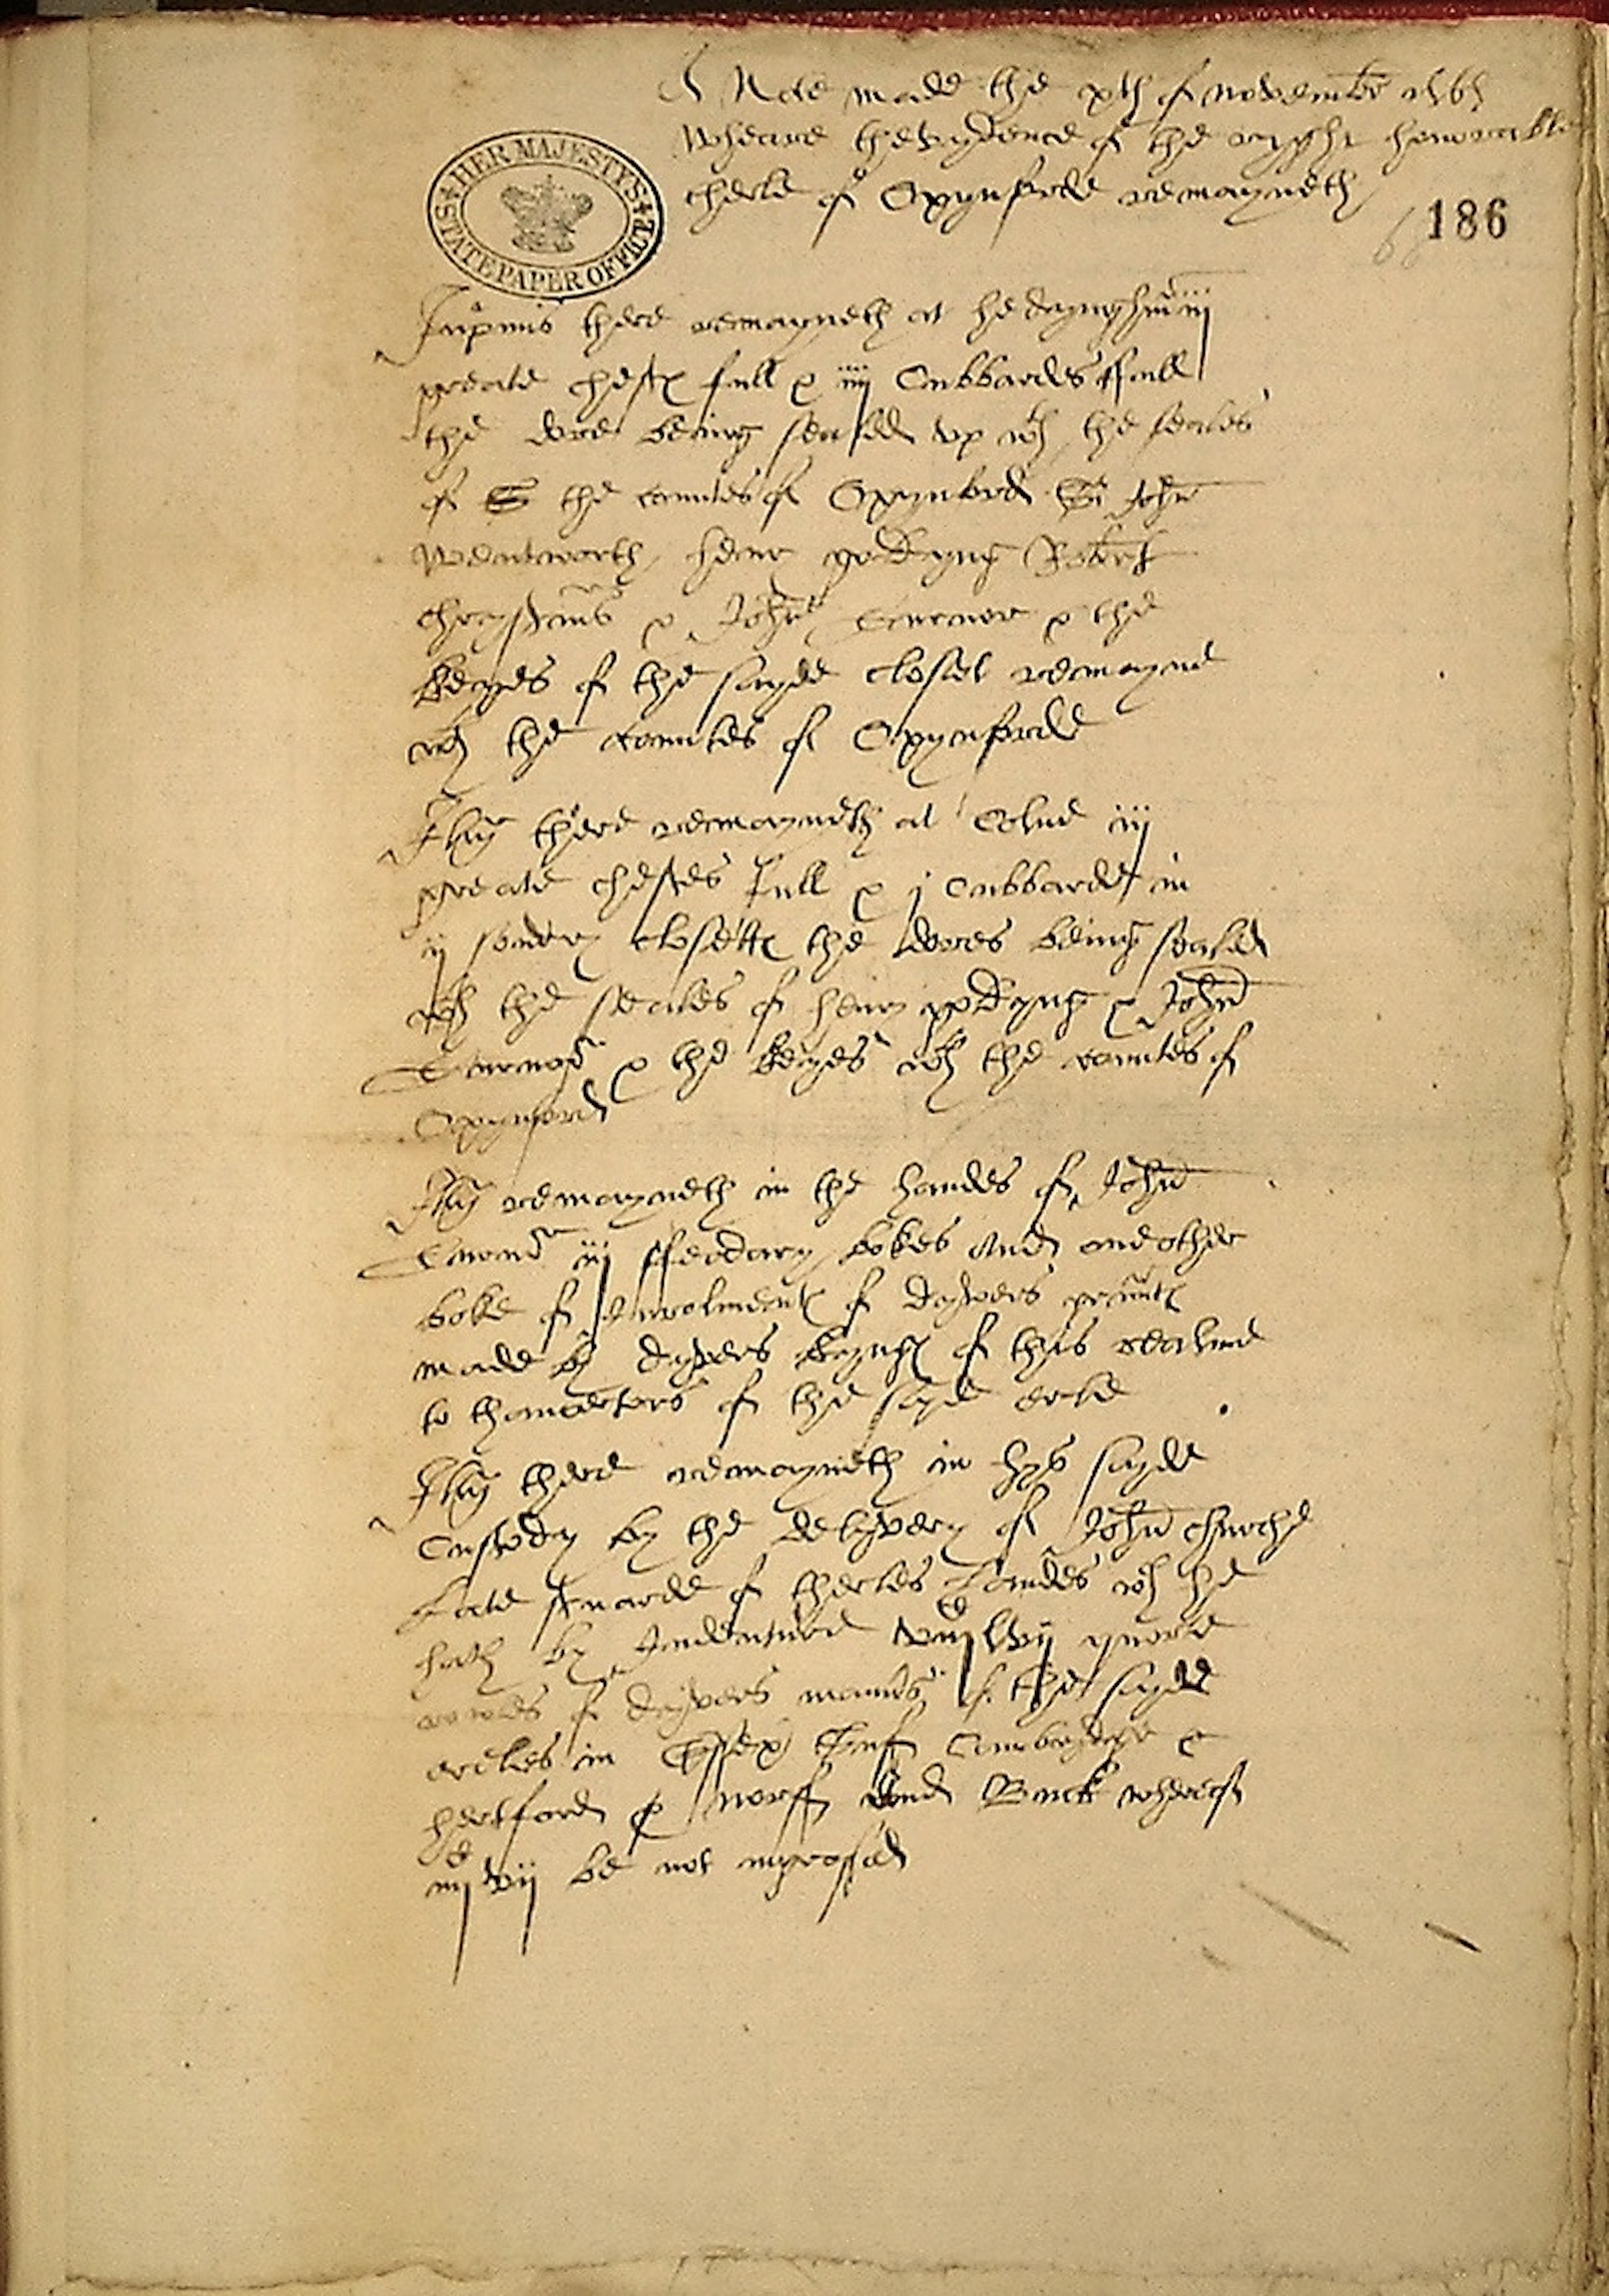 A Note made the xth of november 1562
Wheare thevydence of the ryght honorable
therle of Oxynforde remayneth
HER MAJESTY'S STATE PAPER OFFICE
186
Inp'mis there remayneth at hedynghm iij
greate chest full & iiij Cubbardes full
the dore being sealed vp wth the seales
of the countes of Oxynford Sr John
Wentworth henry goldyng Robert
chrystmas & John Turnor & the
keyes of the sayde closet remayne
wth the countes of Oxynforde
Itm there remayneth at Colne iij
greate chestes full & j Cubbarde in
ij sondry closett the dores being sealed
wth the seales of henry goldyng & John
Turnor & the keyes wth the countes of
Oxynford
Itm remayneth in the handes of John
Turnor iij ffeodary bokes And one other
boke of Inrolment of dyvers graunt
made by dyvers kyng of thys realme
to thancestors of the sayd erle
Itm there remayneth in hys sayde
Custody by the delyvery of John churche
late stuarde of therles landes wch he
hath by Indenture lvij quorte
rowles of dyvers manors of the sayde
erles in Essex Suff Cambrydge &
hertford & norff and Buck wherof
be not ingrossed